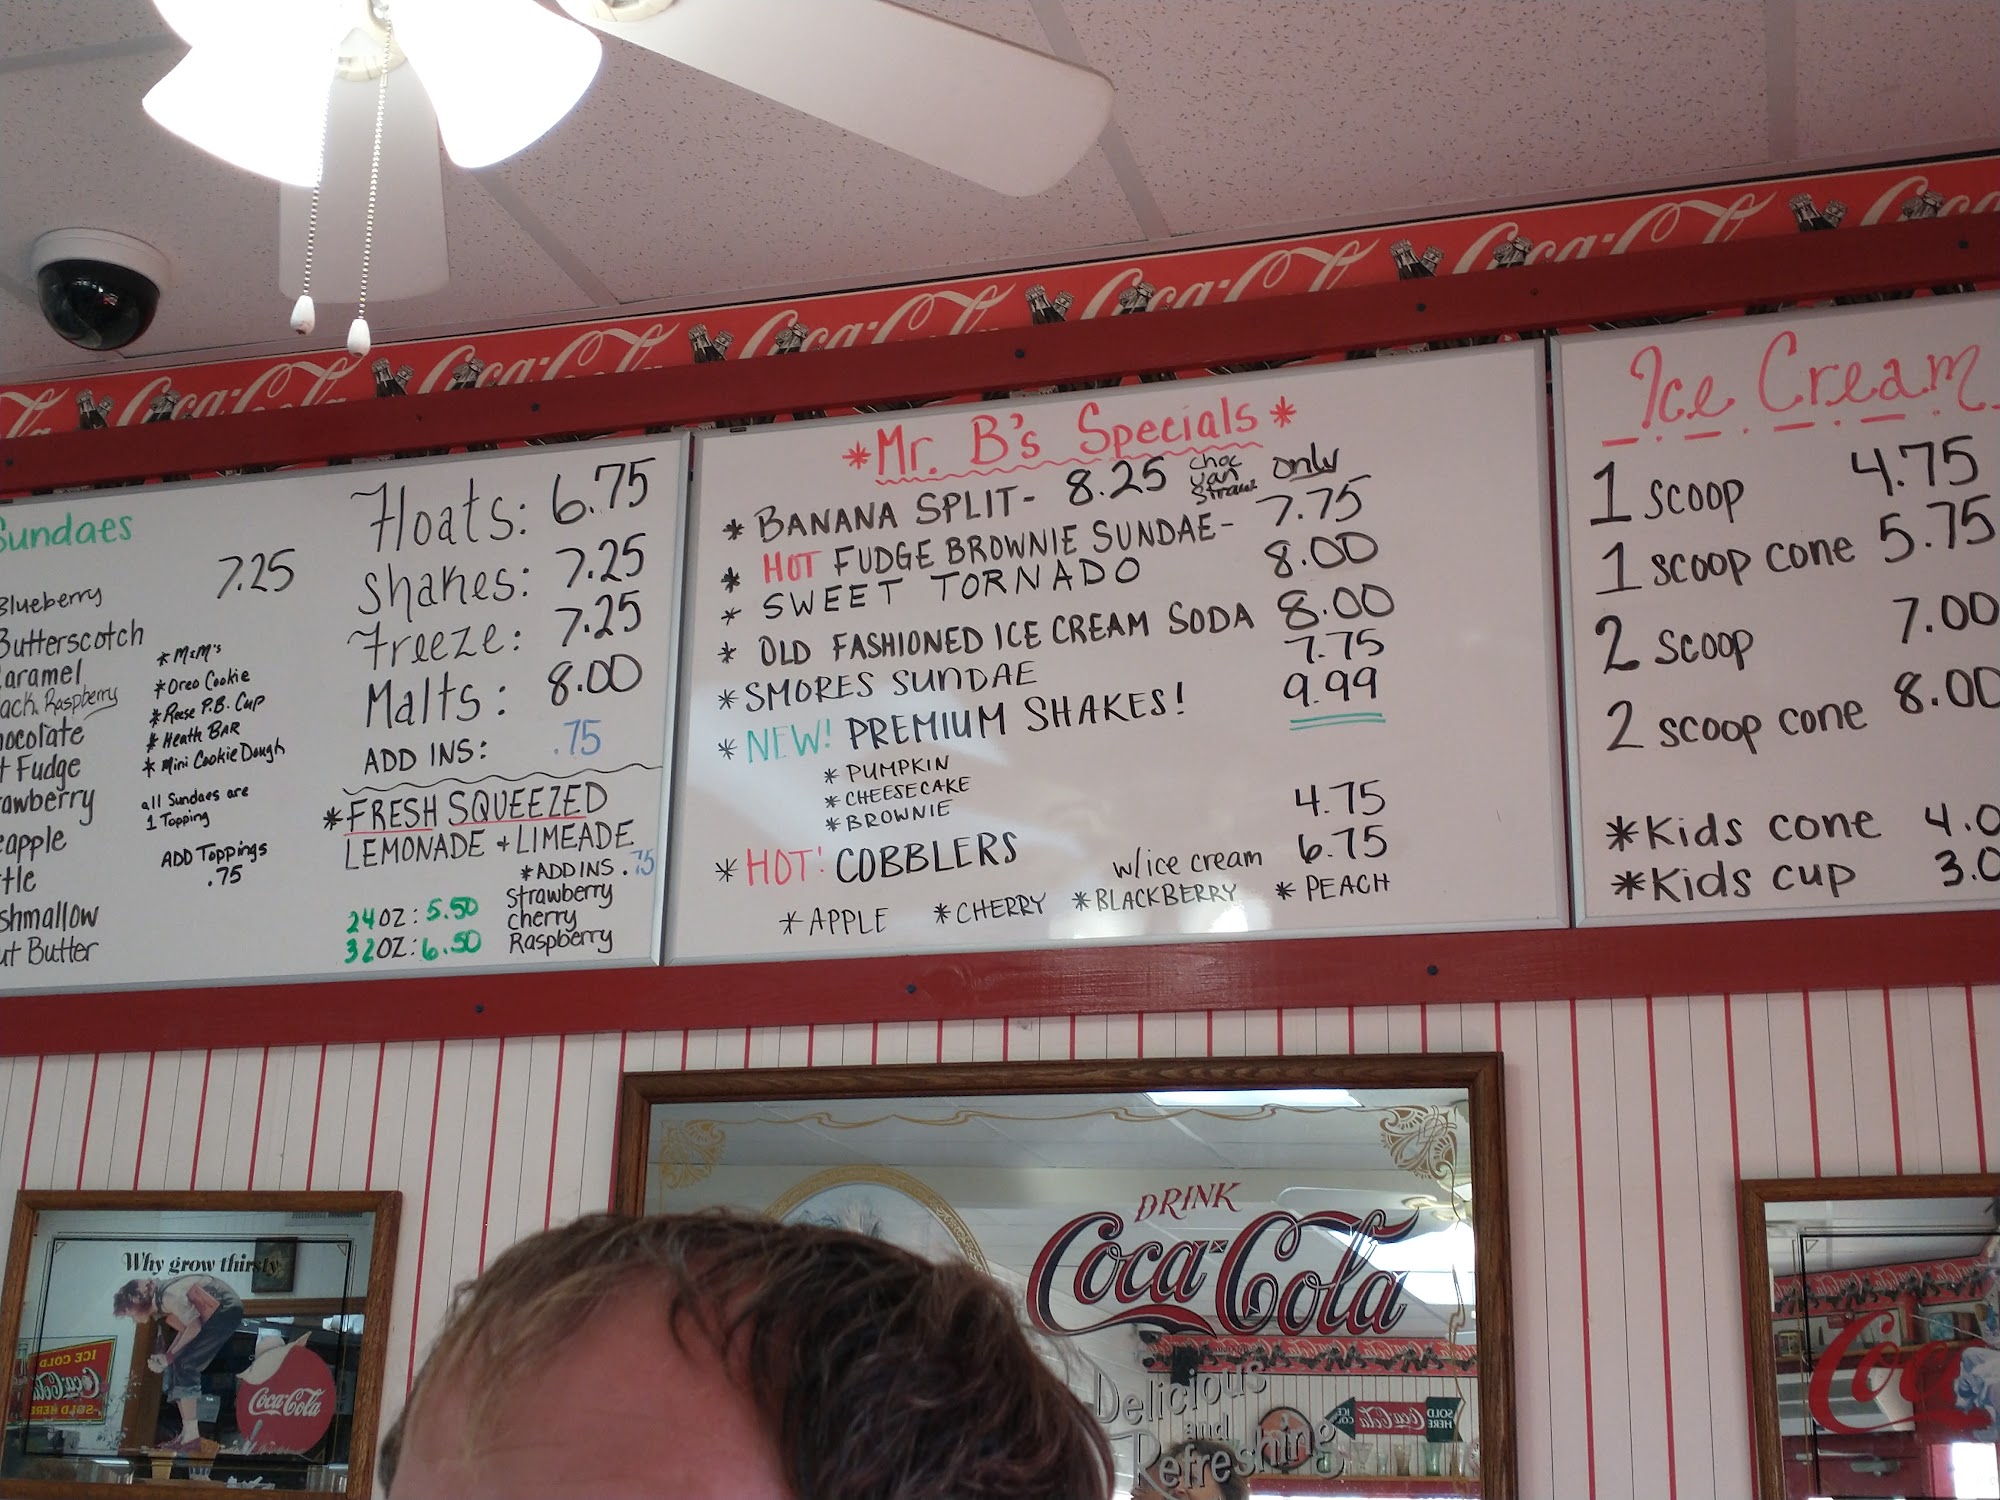 Sundaes
7.25
Blueberry
Butterscotch
Caramel
Raspberry
Chocolate
Fudge
Strawberry
Butter
*M&M's
*Oreo Cookie
*Reese P.B. Cup
*Heath BAR
*Mini Cookie Dough
all Sundaes are
1 Topping
ADD Toppings
.75
Floats: 6.75
Shakes: 7.25
Freeze: 7.25
Malts: 8.00
ADD INS: .75
*FRESH SQUEEZED
LEMONADE + LIMEADE
*ADD INS .75
Strawberry
cherry
Raspberry
24OZ: 5.50
32OZ: 6.50
*Mr. B's Specials*
*BANANA SPLIT- 8.25 choc van Straw. only
*HOT FUDGE BROWNIE SUNDAE- 7.75
*SWEET TORNADO 8.00
*OLD FASHIONED ICE CREAM SODA 8.00
*SMORES SUNDAE 7.75
*NEW! PREMIUM SHAKES! 9.99
*PUMPKIN
*CHEESECAKE
*BROWNIE
*HOT! COBBLERS 4.75
w/ice cream 6.75
*APPLE *CHERRY *BLACKBERRY *PEACH
Ice Cream
1 scoop 4.75
1 scoop cone 5.75
2 scoop 7.00
2 scoop cone 8.00
*Kids cone 4.0
*Kids cup 3.0
Coca-Cola Coca-Cola Coca-Cola Coca-Cola Coca-Cola
Why grow thirsty
Coca-Cola
ICE COLD
Coca-Cola
SOLD HERE
DRINK
Coca-Cola
Delicious
and
Refreshing
SOLD HERE Coca-Cola ICE
Coca